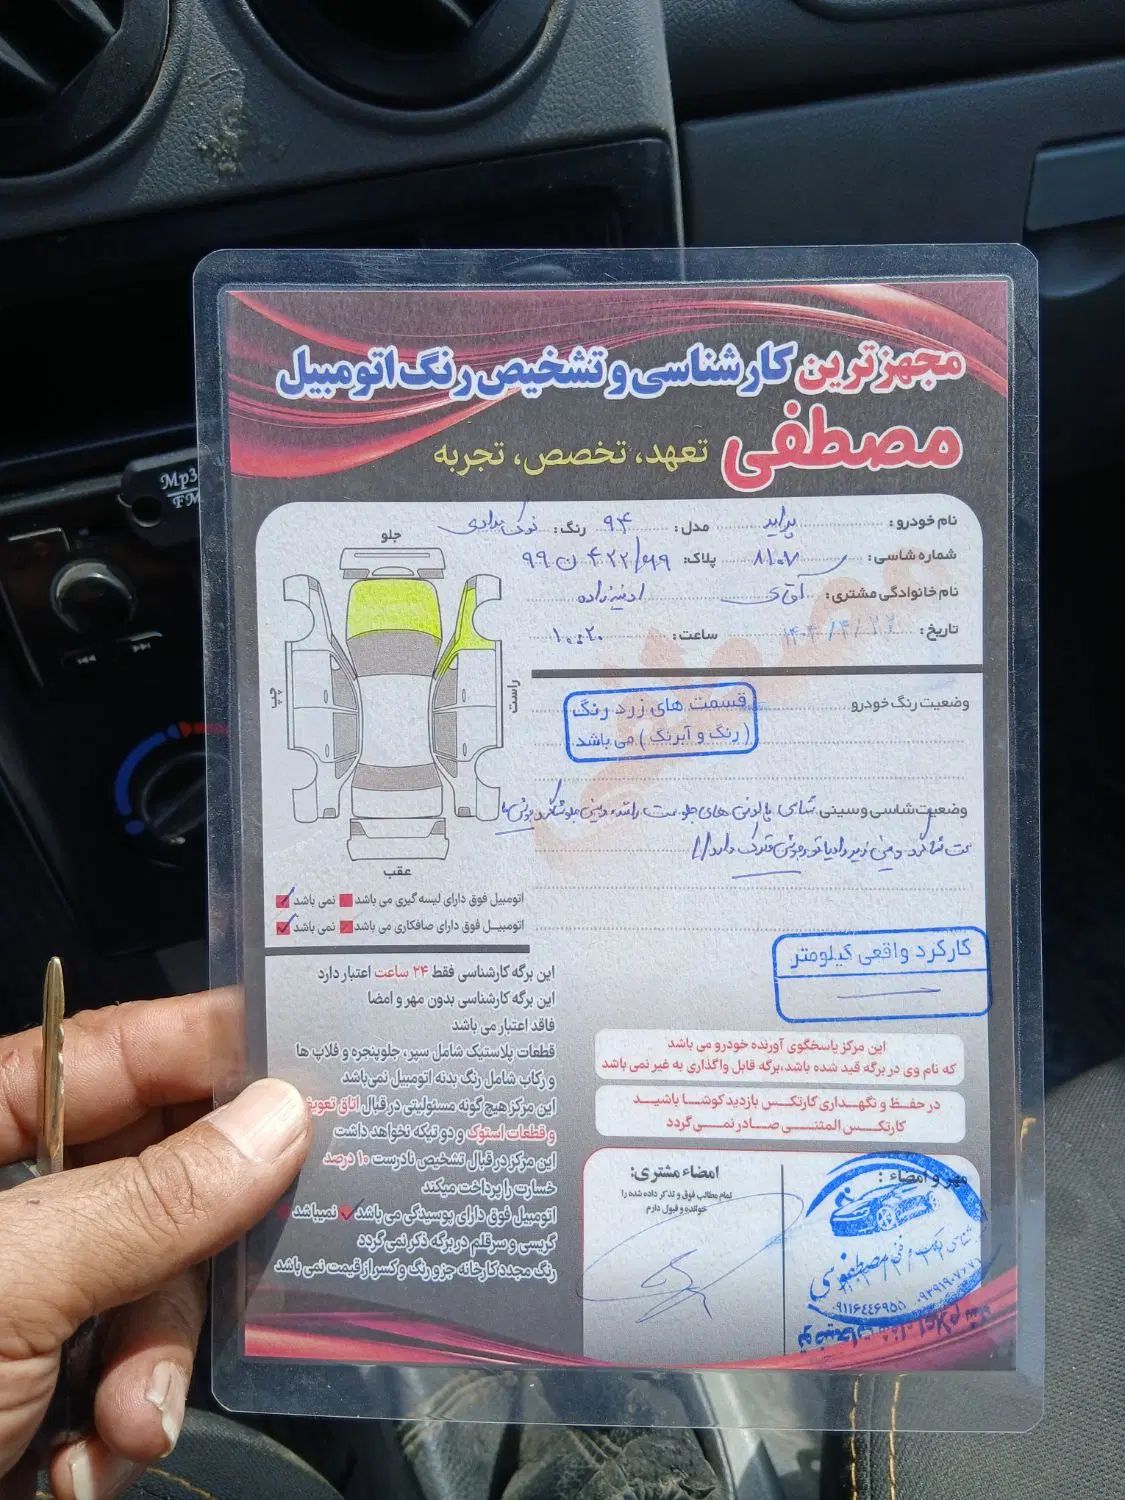 Mp3
FM
مجهزترین کارشناسی و تشخیص رنگ اتومبیل
مصطفی تعهد، تخصص، تجربه
نام خودرو: پراید مدل: ۹۴ رنگ: نوک مدادی
شماره شاسی: ۸۱۰۷ پلاک:
نام خانوادگی مشتری: آقای
تاریخ: ساعت: ۱۰:۲۰
جلو
چپ
راست
عقب
وضعیت رنگ خودرو
قسمت های زرد رنگ
(رنگ و آبرنگ) می باشد
وضعیت شاسی و سینی
اتومبیل فوق دارای لیسه گیری می باشد نمی باشد
اتومبیل فوق دارای صافکاری می باشد نمی باشد
کارکرد واقعی کیلومتر
این برگه کارشناسی فقط ۲۴ ساعت اعتبار دارد
این برگه کارشناسی بدون مهر و امضا
فاقد اعتبار می باشد
قطعات پلاستیک شامل سپر، جلوپنجره و فلاپ ها
و رکاب شامل رنگ بدنه اتومبیل نمی‌باشد
این مرکز هیچ گونه مسئولیتی در قبال اتاق تعویض
و قطعات استوک و دو تیکه نخواهد داشت
این مرکز در قبال تشخیص نادرست ۱۰ درصد
خسارت را پرداخت میکند
اتومبیل فوق دارای پوسیدگی می باشد نمیباشد
گریسی و سرقلم در برگه ذکر نمی گردد
رنگ مجدد کارخانه جزو رنگ و کسر از قیمت نمی باشد
این مرکز پاسخگوی آورنده خودرو می باشد
که نام وی در برگه قید شده باشد، برگه قابل واگذاری به غیر نمی باشد
در حفظ و نگهداری کارتکس بازدید کوشا باشید
کارتکس المثنی صادر نمی گردد
امضاء مشتری:
تمام مطالب فوق و تذکر داده شده را
خوانده و قبول دارم
مهر و امضاء: